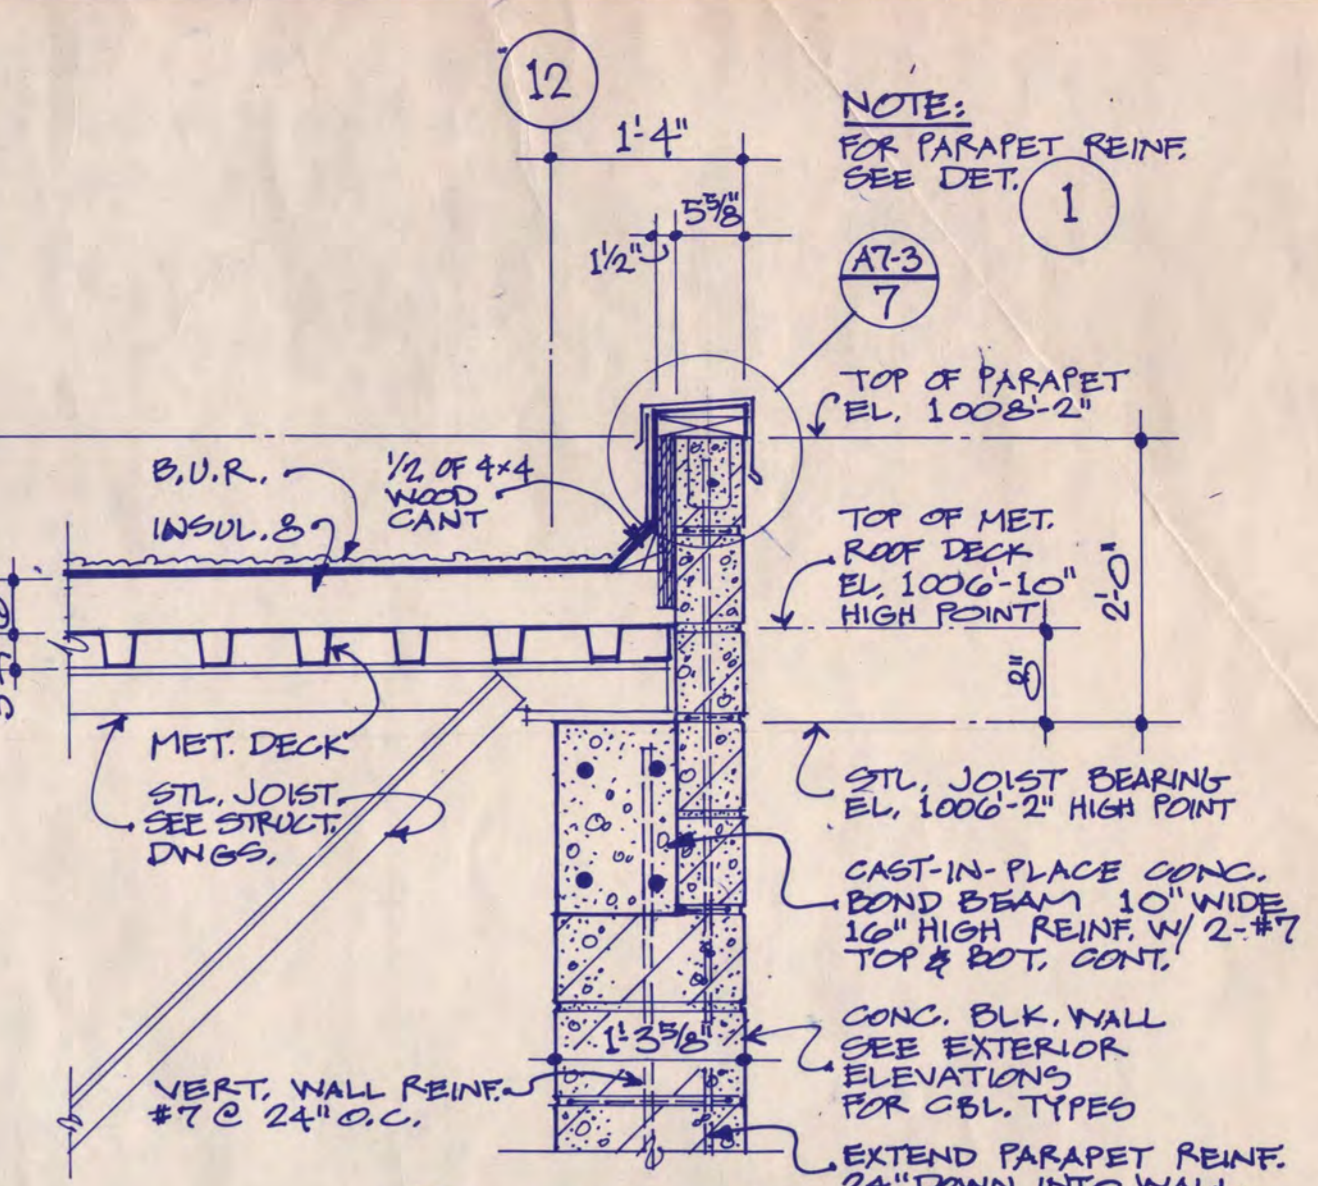 12
1'-4"
NOTE:
FOR PARAPET REINF.
SEE DET. 1
5 5/8"
1 1/2"
A7-3
7
TOP OF PARAPET
EL. 1008'-2"
B.U.R.
1/2 OF 4x4
WOOD
CANT
INSUL. 8
TOP OF MET.
ROOF DECK
EL. 1006'-10"
HIGH POINT
2'-0"
8"
MET. DECK
STL. JOIST
SEE STRUCT.
DWGS.
STL. JOIST BEARING
EL. 1006'-2" HIGH POINT
CAST-IN-PLACE CONC.
BOND BEAM 10" WIDE
16" HIGH REINF. W/ 2-#7
TOP & BOT. CONT.
1'-3 5/8"
CONC. BLK. WALL
SEE EXTERIOR
ELEVATIONS
FOR CBL. TYPES
VERT. WALL REINF.
#7 @ 24" O.C.
EXTEND PARAPET REINF.
24" DOWN INTO WALL